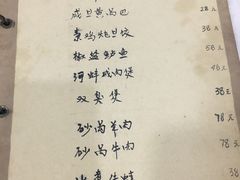 成旦黄面巴 28元
素鸡炖旦饺 38元
椒盐鲈鱼 58元
河蚌咸肉煲 46元
双臭煲 38元
砂锅羊肉 78元
砂锅牛肉 78元
牛蛙 38